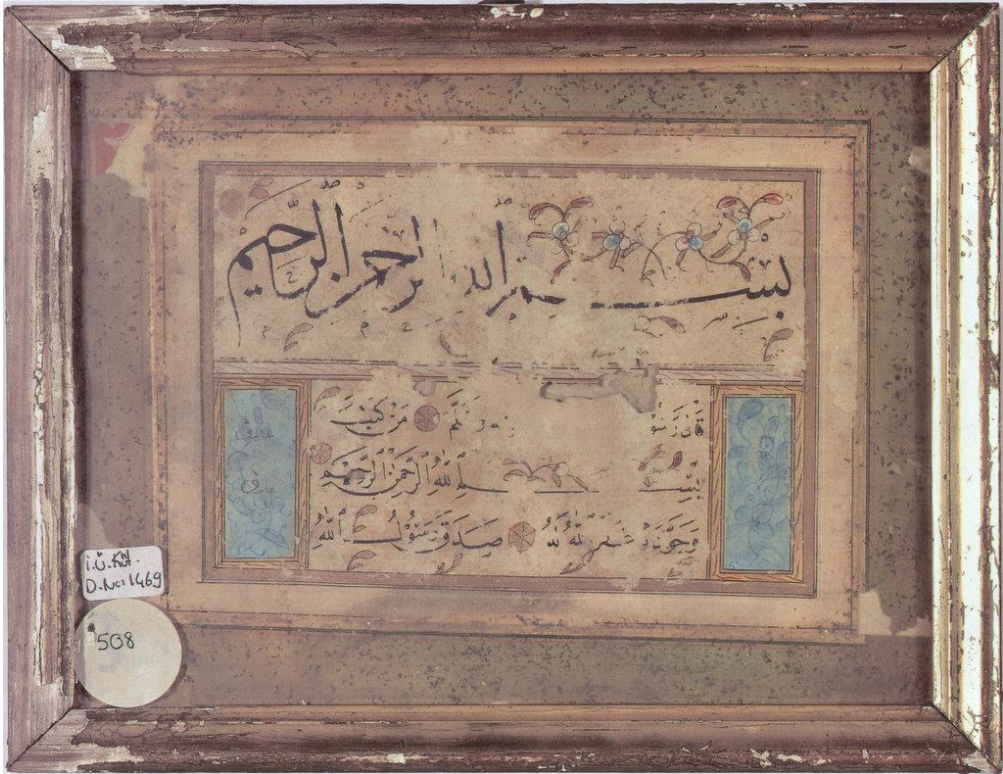 بسم الله الرحمن الرحيم
من كتب
بسم الله الرحمن الرحيم
وجوده غفر الله له صدق رسول الله
İ.Ü.KTP.
D.No: 1469
508